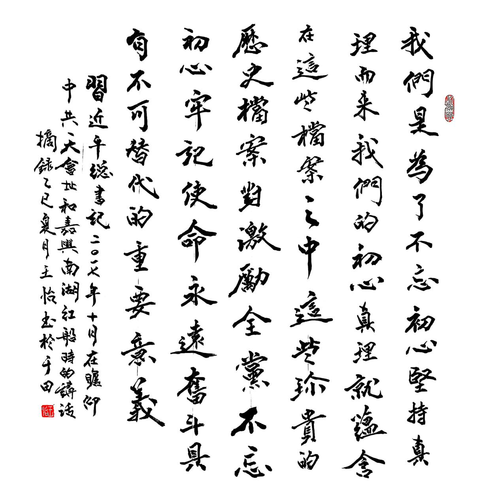 我們是為了不忘初心堅持真
理而来我們的初心真理就蘊含
在這些檔案之中這些珍貴的
歷史檔案對激勵全黨不忘
初心牢記使命永遠奮斗具
有不可替代的重要意義
習近平総書記二〇一七年十月在瞻仰
中共一大會址和嘉興南湖紅船時的講話
摘録乙巳夏月王怡書於于田